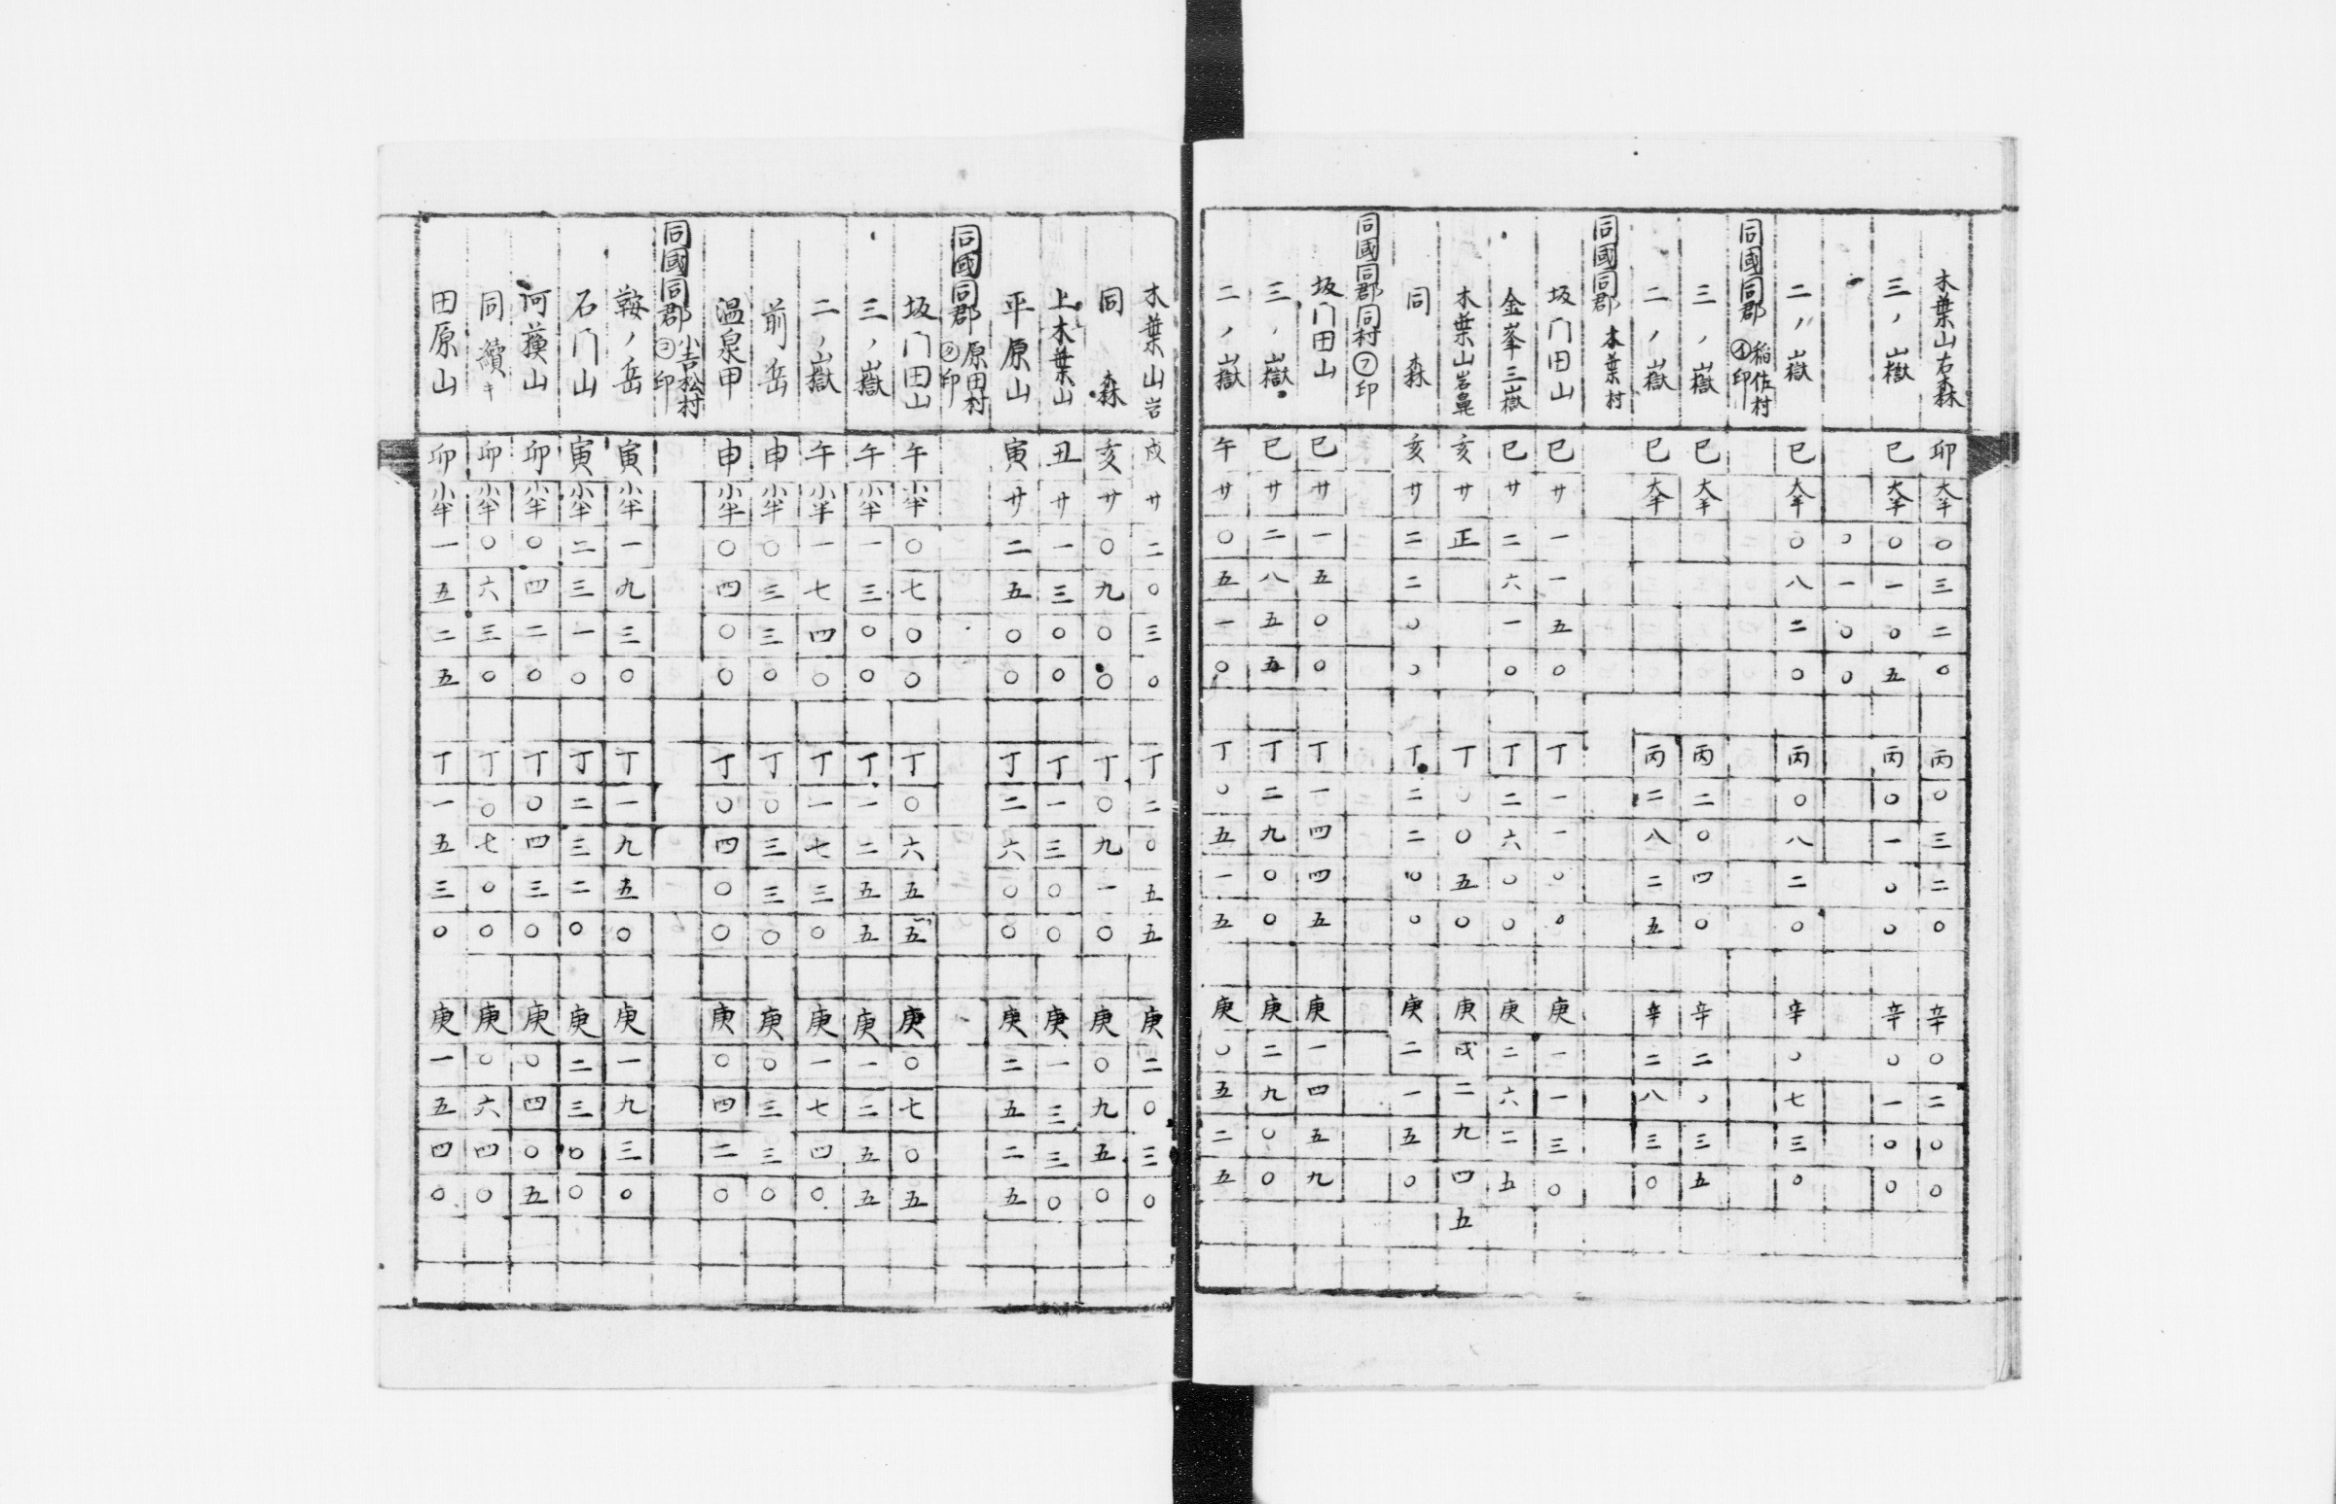 木葉山右森 卯 大半 〇 三 二 〇 丙 〇 三 二 〇 辛 〇 二 〇 〇
三ノ嶽 巳 大半 〇 一 〇 五 丙 〇 一 〇 〇 辛 〇 一 〇 〇
〇 一 〇 〇
二ノ嶽 巳 大半 〇 八 二 〇 丙 〇 八 二 〇 辛 〇 七 三 〇
同國同郡 稲佐村 印
三ノ嶽 巳 大半 丙 二 〇 四 〇 辛 二 〇 三 五
二ノ嶽 巳 大半 丙 二 八 二 五 辛 二 八 三 〇
同國同郡 木葉村
坂门田山 巳 サ 一 一 五 〇 丁 一 一 〇 〇 庚 一 一 三 〇
金峯三嶽 巳 サ 二 六 一 〇 丁 二 六 〇 〇 庚 二 六 二 五
木葉山岩鼻 亥 サ 正 丁 〇 〇 五 〇 庚 戌 二 九 四 五
同 森 亥 サ 二 二 〇 〇 丁 二 二 〇 〇 庚 二 一 五 〇
同國同郡同村 フ 印
坂门田山 巳 サ 一 五 〇 〇 丁 一 四 四 五 庚 一 四 五 九
三ノ嶽 巳 サ 二 八 五 五 丁 二 九 〇 〇 庚 二 九 〇 〇
二ノ嶽 午 サ 〇 五 一 〇 丁 〇 五 一 五 庚 〇 五 二 五
木葉山岩 戌 サ 二 〇 三 〇 丁 二 〇 五 五 庚 二 〇 三 〇
同 森 亥 サ 〇 九 〇 〇 丁 〇 九 一 〇 庚 〇 九 五 〇
上木葉山 丑 サ 一 三 〇 〇 丁 一 三 〇 〇 庚 一 三 三 〇
平原山 寅 サ 二 五 〇 〇 丁 二 六 〇 〇 庚 二 五 二 五
同國同郡 原田村 印
坂门田山 午 小半 〇 七 〇 〇 丁 〇 六 五 五 庚 〇 七 〇 五
三ノ嶽 午 小半 一 三 〇 〇 丁 一 二 五 五 庚 一 二 五 五
二ノ嶽 午 小半 一 七 四 〇 丁 一 七 三 〇 庚 一 七 四 〇
前岳 申 小半 〇 三 三 〇 丁 〇 三 三 〇 庚 〇 三 三 〇
温泉甲 申 小半 〇 四 〇 〇 丁 〇 四 〇 〇 庚 〇 四 二 〇
同國同郡 吉松村 印
鞍ノ岳 寅 小半 一 九 三 〇 丁 一 九 五 〇 庚 一 九 三 〇
石门山 寅 小半 二 三 一 〇 丁 二 三 二 〇 庚 二 三 〇 〇
河蕿山 卯 小半 〇 四 二 〇 丁 〇 四 三 〇 庚 〇 四 〇 五
同續キ 卯 小半 〇 六 三 〇 丁 〇 七 〇 〇 庚 〇 六 四 〇
田原山 卯 小半 一 五 二 五 丁 一 五 三 〇 庚 一 五 四 〇